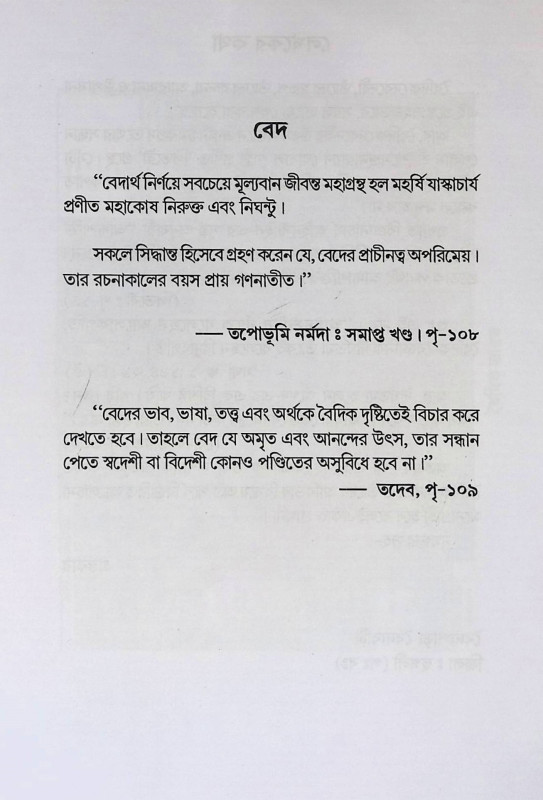 বেদ
“বেদার্থ নির্ণয়ে সবচেয়ে মূল্যবান জীবন্ত মহাগ্রন্থ হল মহর্ষি যাস্কাচার্য
প্রণীত মহাকোষ নিরুক্ত এবং নিঘন্টু।
সকলে সিদ্ধান্ত হিসেবে গ্রহণ করেন যে, বেদের প্রাচীনত্ব অপরিমেয়।
তার রচনাকালের বয়স প্রায় গণনাতীত।”
— তপোভূমি নর্মদা ঃ সমাপ্ত খণ্ড। পৃ-১০৮
“বেদের ভাব, ভাষা, তত্ত্ব এবং অর্থকে বৈদিক দৃষ্টিতেই বিচার করে
দেখতে হবে। তাহলে বেদ যে অমৃত এবং আনন্দের উৎস, তার সন্ধান
পেতে স্বদেশী বা বিদেশী কোনও পণ্ডিতের অসুবিধে হবে না।”
— তদেব, পৃ-১০৯